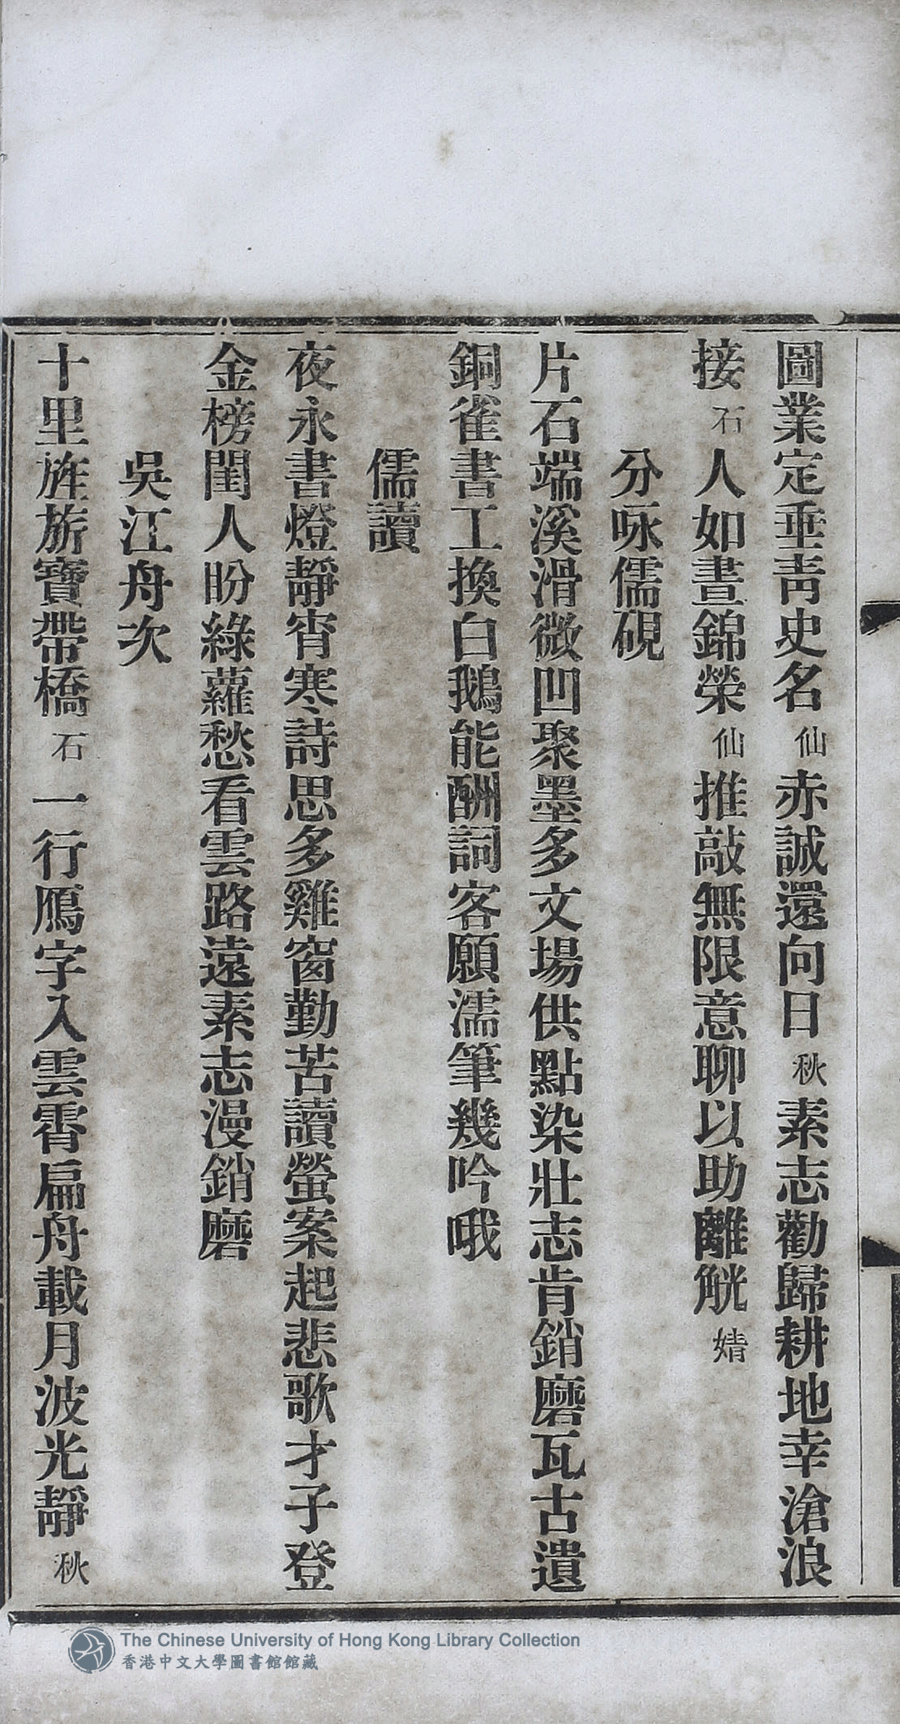 圖業定垂靑史名仙赤誠還向日秋素志勸歸耕地幸滄浪
接石人如晝錦榮仙推敲無限意聊以助離觥婧
分咏儒硯
片石端溪滑微凹聚墨多文場供點染壯志肯銷磨瓦古遺
銅雀書工換白鵝能酬詞客願濡筆幾吟哦
儒讀
夜永書燈靜宵寒詩思多雞窗勤苦讀螢案起悲歌才子登
金榜閨人盼綠蘿愁看雲路遠素志漫銷磨
吳江舟次
十里旌旂寶帶橋石一行鴈字入雲霄扁舟載月波光靜秋
The Chinese University of Hong Kong Library Collection
香港中文大學圖書館館藏